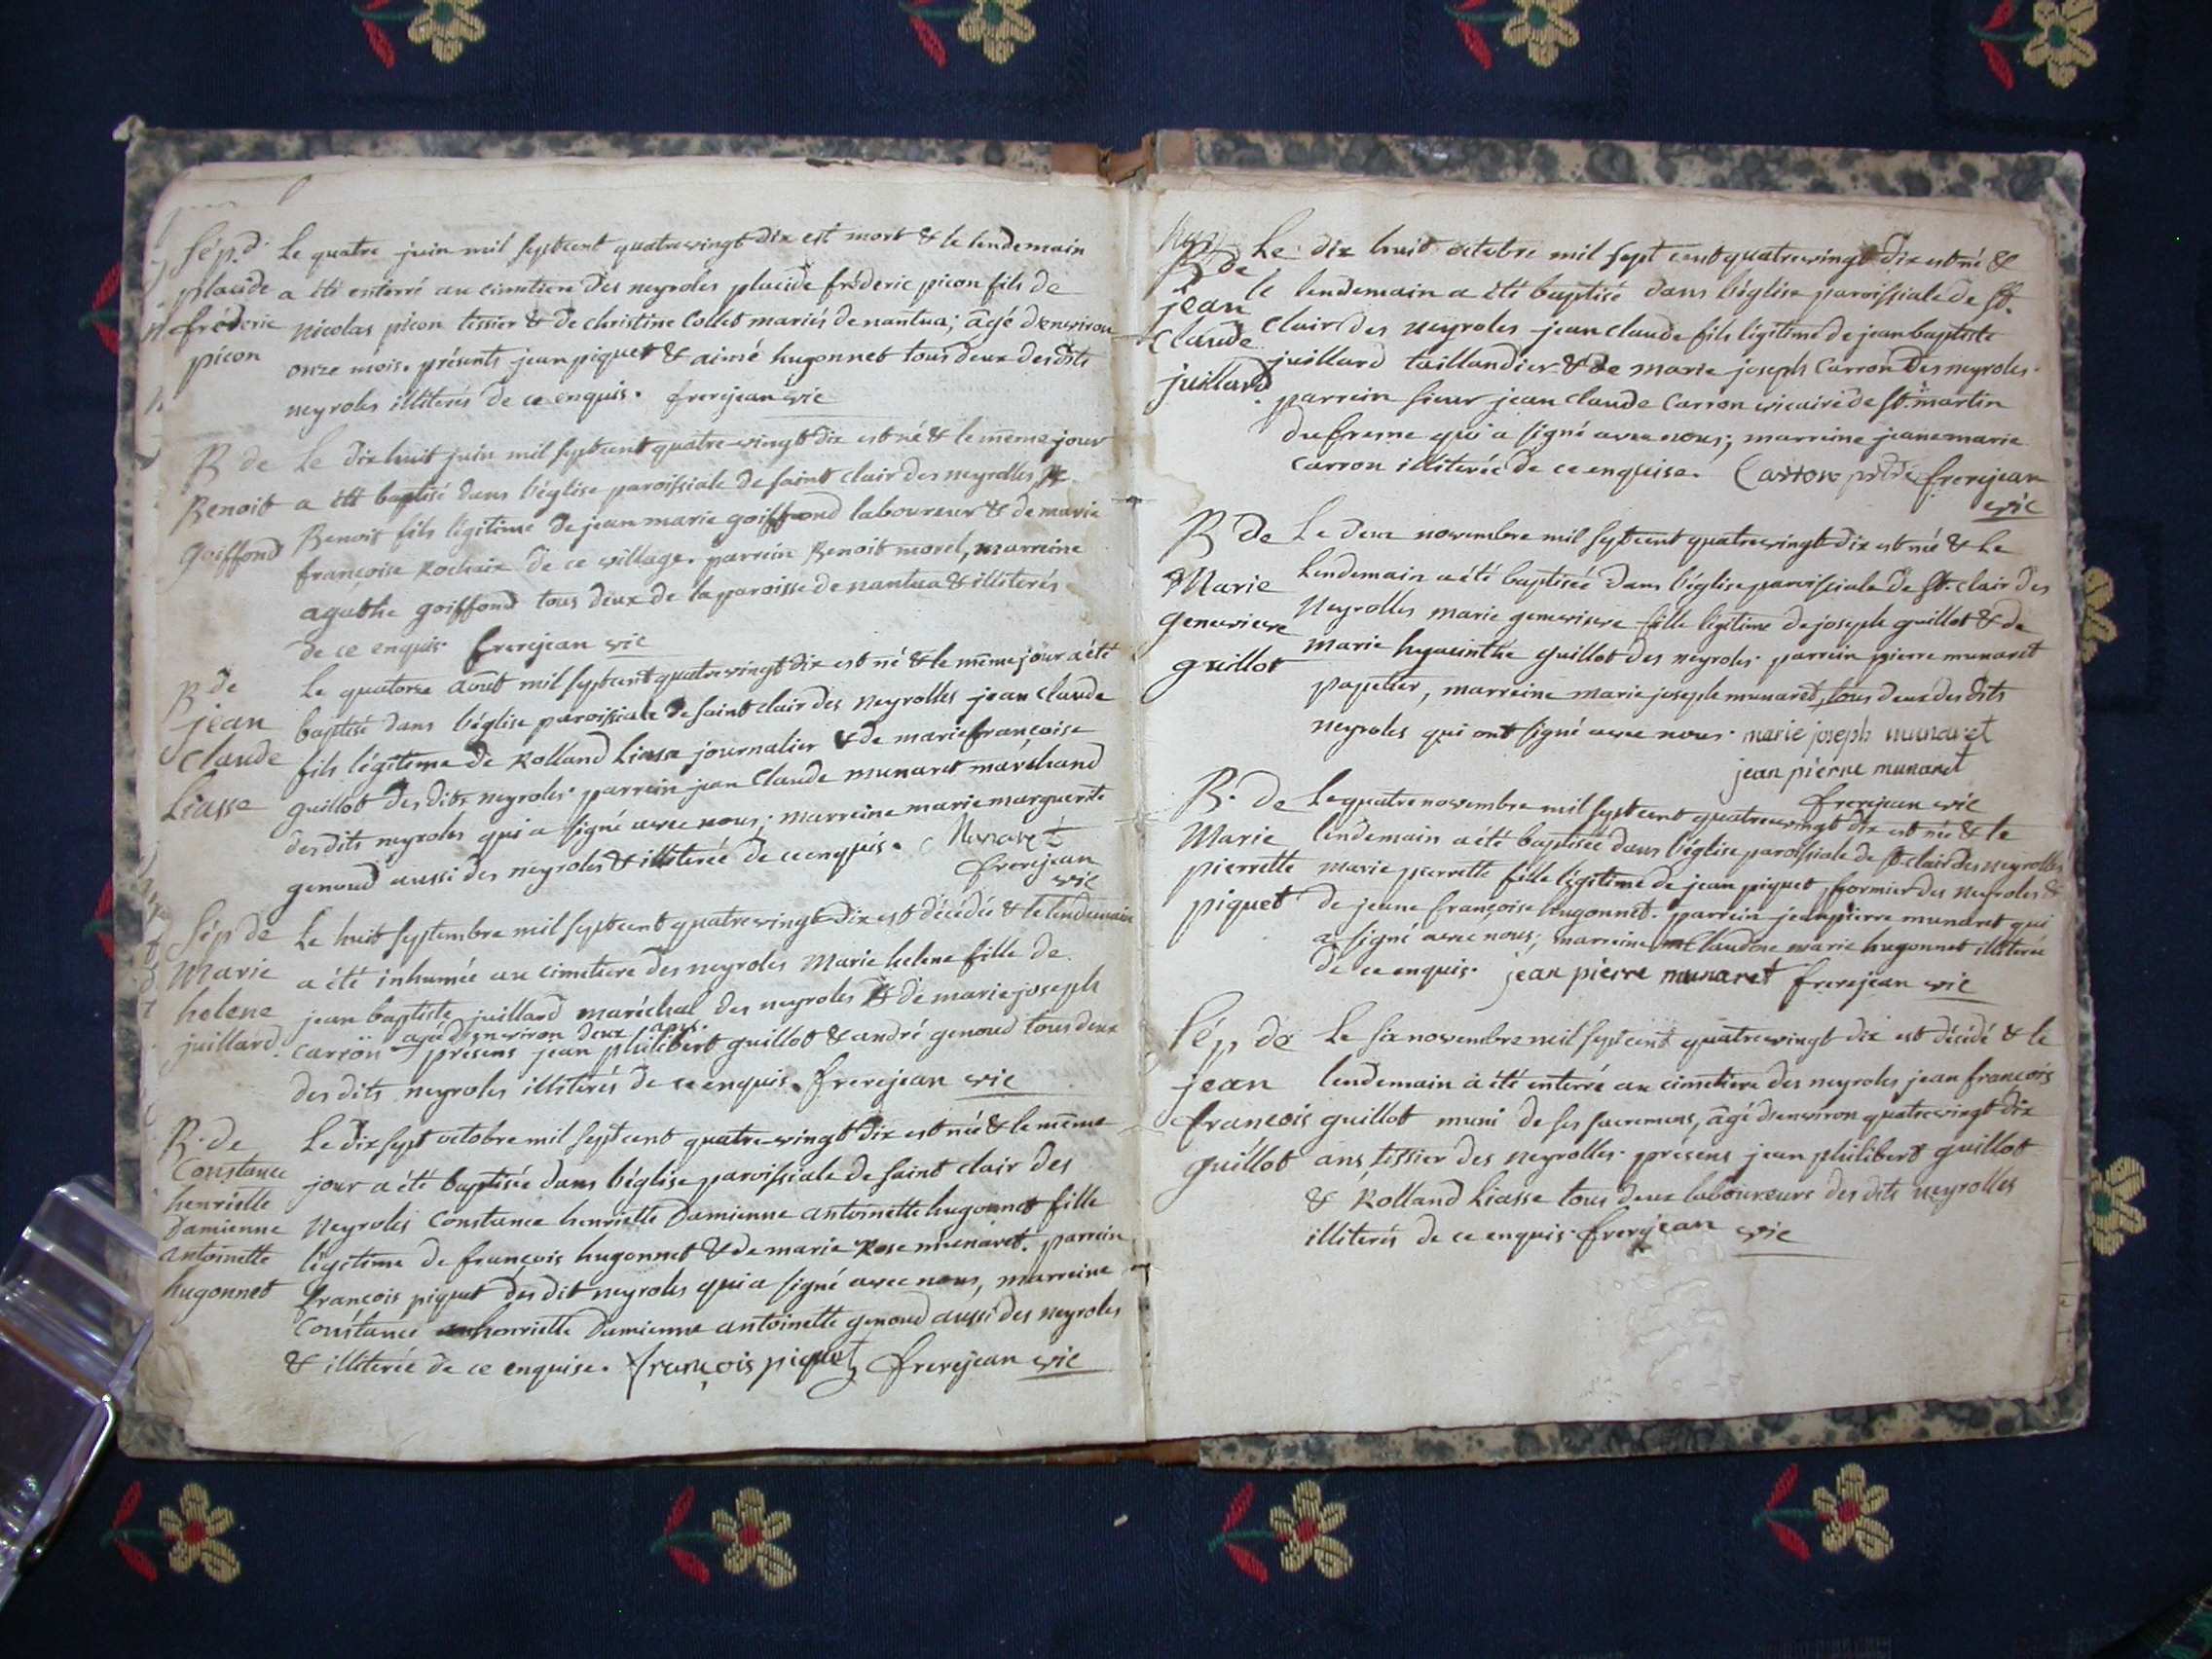 Sép. d.
placide
fréderic
picon
Le quatre juin mil septcent quatrevingt dix est mort & le lendemain
a été enterré au cimetiere des neyroles placide fréderic picon fils de
nicolas picon tessier & de christine Collet mariés de nantua; âgé d'environ
onze mois. présents jean piquet & aimé hugonnet tous deux des dits
neyroles illiterés de ce enquis. frerejean vic
B de
Benoit
goiffond
Le dix huit juin mil septcent quatre-vingt dix est né & le même jour
a été baptisé dans l'église paroissiale de saint clair des neyrolles
Benoit fils légitime de jean marie goiffond laboureur & de marie
françoise Rochaix de ce village. parrein Benoit morel, marreine
agathe goiffond tous deux de la paroisse de nantua & illiterés
de ce enquis. frerejean vic
B de
jean
Claude
Liasse
Le quatorze août mil septcent quatrevingt dix est né & le même jour a été
baptisé dans l'église paroissiale de saint clair des Neyrolles jean Claude
fils légitime de Rolland Liasse journalier & de marie françoise
guillot des dits neyroles. parrein jean Claude munaret marchand
des dits neyroles qui a signé avec nous; marreine marie marguerite
genoud aussi des neyroles & illiterée de ce enquis. Munaret
frerejean
vic
Sép de
Marie
helene
juillard
Le huit septembre mil septcent quatrevingt dix est décédée & le lendemain
a été inhumée au cimetiere des neyroles Marie helene fille de
jean baptiste juillard maréchal des neyroles & de marie joseph
agée d'environ deux ans.
carron présens jean philibert guillot & andré genoud tous deux
des dits neyroles illiterés de ce enquis. frerejean vic
B. de
Constance
henriette
Damienne
antoinette
hugonnet
Le dix sept octobre mil septcent quatre-vingt dix est née & le même
jour a été baptisée dans l'église paroissiale de saint clair des
Neyroles Constance henriette Damienne antoinette hugonnet fille
légitime de françois hugonnet & de marie Rose munaret. parrein
françois piquet des dit neyroles qui a signé avec nous, marreine
Constance henriette Damienne antoinette genoud aussi des neyroles
& illiterée de ce enquise. françois piquet frerejean vic
B de
jean
Claude
juillard
Le dix huit octobre mil sept cent quatrevingt dix est né &
le lendemain a été baptisé dans l'église paroissiale de St.
Clair des neyroles jean claude fils légitime de jean baptiste
juillard taillandier & de marie joseph Carron des neyroles.
parrein sieur jean claude Carron vicaire de St. martin
du fresne qui a signé avec nous; marreine jeane marie
carron illiterée de ce enquise. Carron ptre frerejean
vic
B de
Marie
genevieve
guillot
Le deux novembre mil septcent quatrevingt dix est né & Le
Lendemain a été baptisée dans l'église paroissiale de St. clair des
Neyrolles marie genevieve fille légitime de joseph guillot & de
marie hyacinthe guillot des neyroles. parrein pierre munaret
papetier, marreine marie joseph munaret, tous deux des dits
neyroles qui ont signé avec nous. marie joseph munaret
jean pierre munaret
frerejean vic
B. de
Marie
pierrette
piquet
Le quatre novembre mil septcent quatrevingt dix est née & le
lendemain a été baptisée dans l'église paroissiale de St. clair des neyrolles
marie pierrette fille légitime de jean piquet, formier des neyroles &
de jeane françoise hugonnet. parrein jean pierre munaret qui
a signé avec nous; marreine Claudine marie hugonnet illiterée
de ce enquis. jean pierre munaret frerejean vic
Sép de
jean
françois
guillot
Le six novembre mil septcent quatrevingt dix est décédé & le
lendemain à été enterré au cimetiere des neyroles jean françois
guillot muni de ses sacremens, âgé d'environ quatrevingt dix
ans, tessier des neyrolles. présens jean philibert guillot
& Rolland Liasse tous deux laboureurs des dits neyrolles
illiterés de ce enquis. frerejean vic